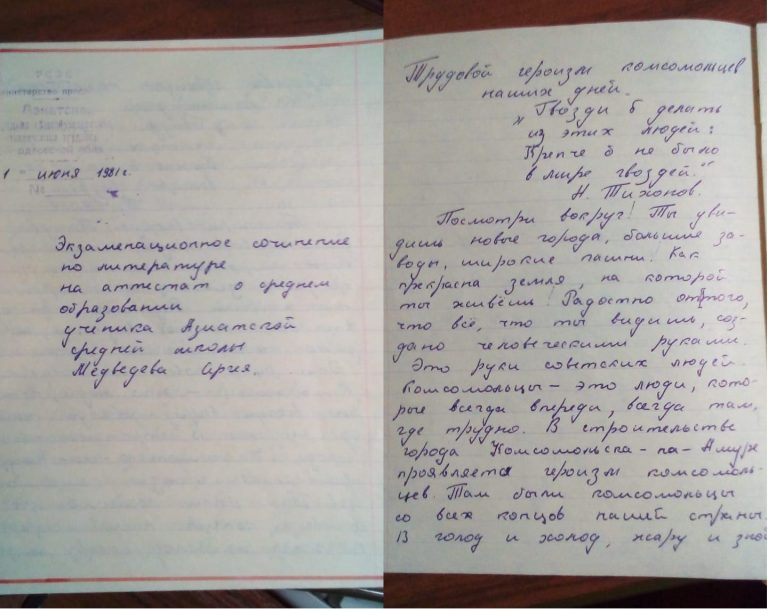 РСФСР
министерство просв
Азиатская
средняя
1 июня 1981г.
№
Экзаменационное сочинение
по литературе
на аттестат о среднем
образовании
ученика Азиатской
средней школы
Медведева Сергея.
Трудовой героизм комсомольцев
наших дней.
"Гвозди б делать
из этих людей:
Крепче б не было
в мире гвоздей."
Н. Тихонов.
Посмотри вокруг! Ты уви-
дишь новые города, большие за-
воды, широкие пашни. Как
прекрасна земля, на которой
ты живёшь! Радостно оттого,
что всё, что ты видишь, соз-
дано человеческими руками.
Это руки советских людей.
Комсомольцы – это люди, кото-
рые всегда впереди, всегда там,
где трудно. В строительстве
города Комсомольска-на-Амуре
проявляется героизм комсомоль-
цев. Там были комсомольцы
со всех концов нашей страны.
В голод и холод, жару и зной